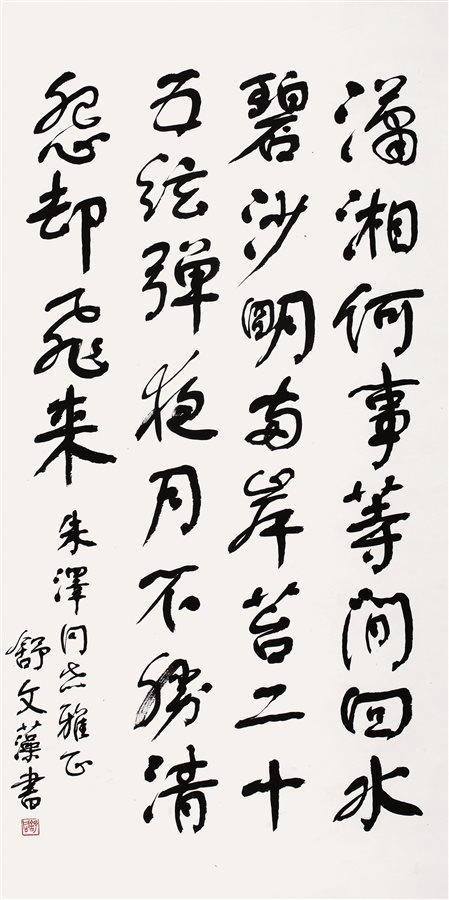 潇湘何事等间回水
碧沙明两岸苔二十
五弦弹夜月不胜清
怨却飛来
朱澤同志雅正
舒文藻書